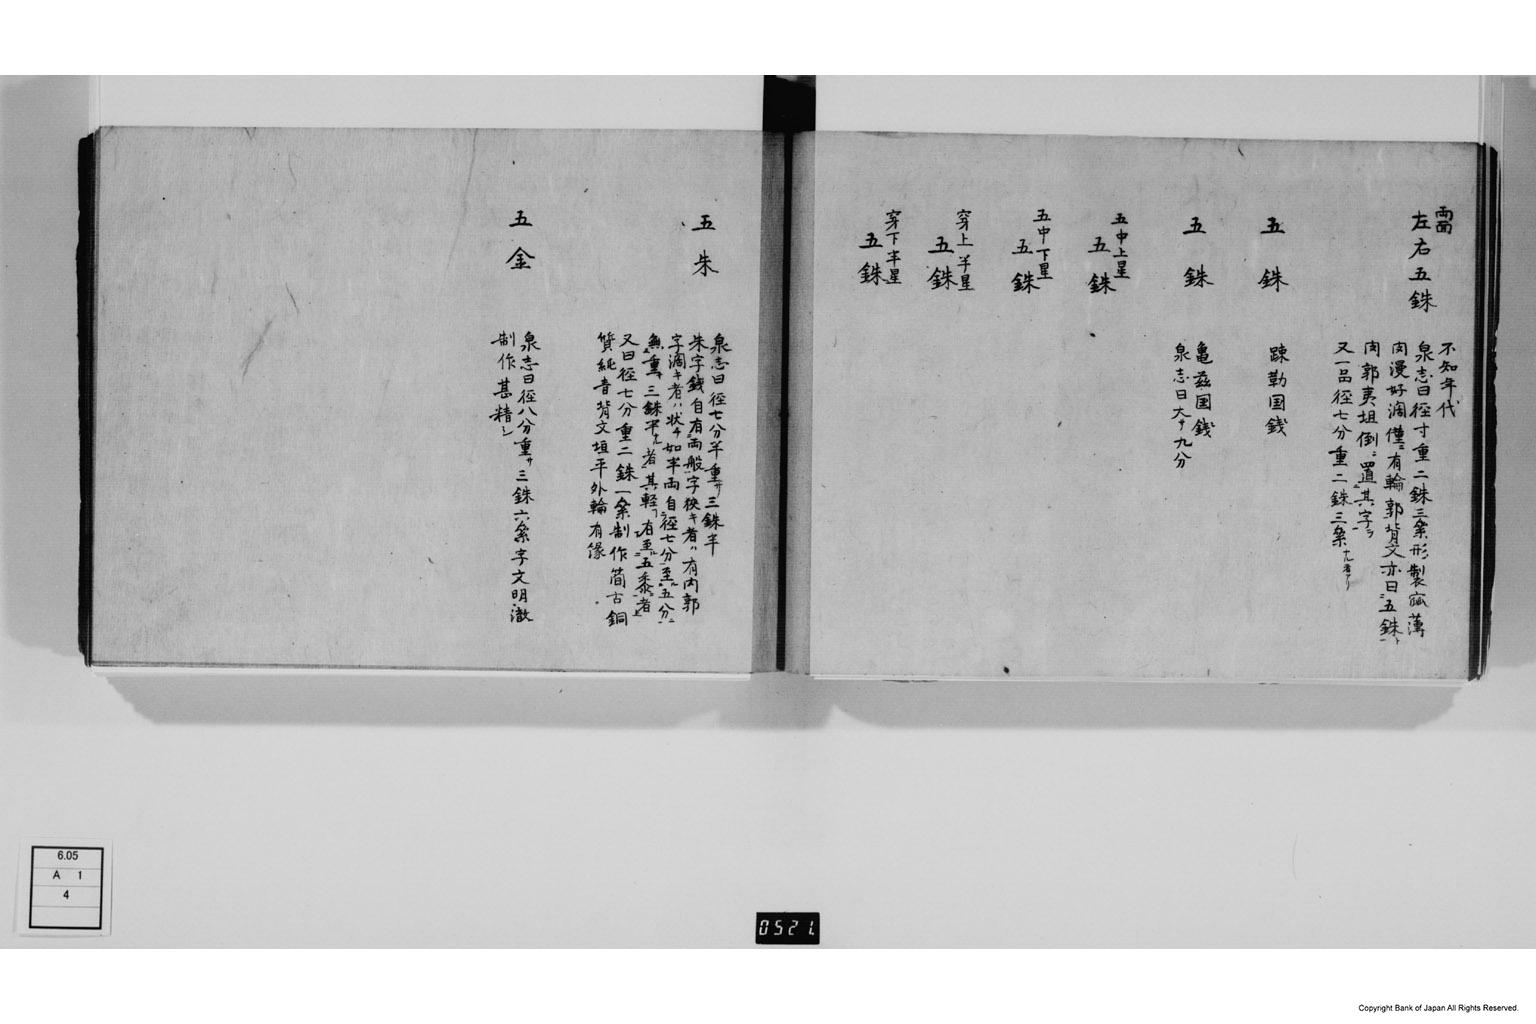 両面
左右五銖
不知年代
泉志曰径寸重二銖三絫形製窳薄
肉漫好濶僅ニ有輪郭背文亦曰五銖ト
肉郭夷坦倒ニ置其字ヲ
又一品径七分重二銖三絫ナル者アリ
五銖
疎勒国銭
五銖
亀茲国銭
泉志曰大サ九分
五中上星
五銖
五中下星
五銖
穿上半星
五銖
穿下半星
五銖
五朱
泉志曰径七分半重サ三銖半
朱字銭自有両般字狭キ者ハ有内郭
字濶キ者ハ状チ如半両自径七分至五分ニ
無重三銖半ナル者其軽フ有至五黍者
又曰径七分重二銖一絫制作簡古銅
質純青背文坦平外輪有縁
五金
泉志曰径八分重サ三銖六絫字文明澈
制作甚精シ
6.05
A 1
4
0521
Copyright Bank of Japan All Rights Reserved.